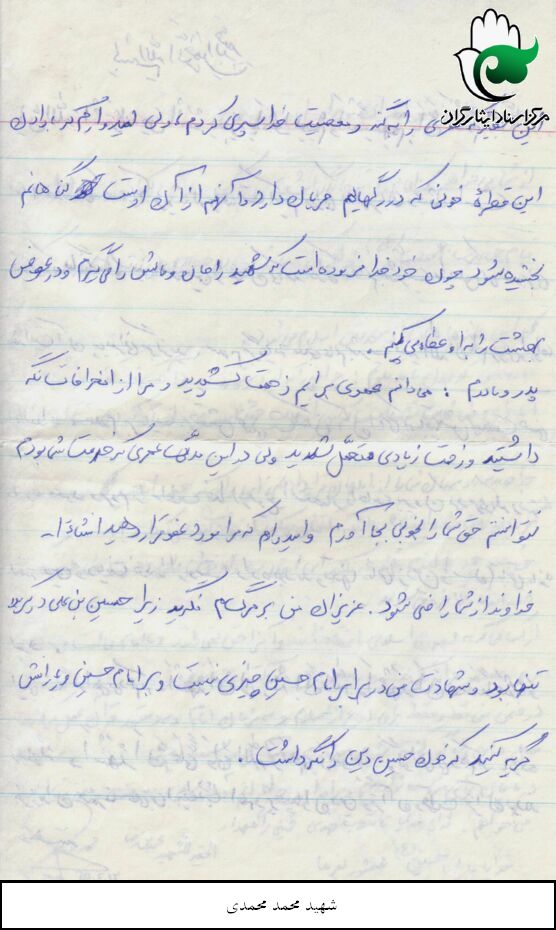 مرکز اسناد ایثارگران
را به گنه و معصیت خدا سپری کردم ولی امیدوارم که با اول
این قطرهٔ خونی که در رگهایم جریان دارد و آنهم از آن اوست گناهانم
بخشیده شود چون خود خدا فرموده است که شهید را جان و مالش را می‌گیرم و در عوض
بهشت را به او عطا می‌کنیم .
پدر و مادرم : می‌دانم عمری برایم زحمت کشیدید و مرا از انحرافات نگه
داشتید و زحمت زیادی متحمّل شدید ولی در این مدتی عمری که خدمت شما بودم
نتوانستم حق شما را بخوبی بجا آورم و امیدوارم که مرا مورد عفو قرار دهید انشاءا..
خداوند از شما راضی شود . عزیزان من بر مرگم نگرید زیرا حسین بن علی در کربلا
تنها بود و شهادت من در برابر امام حسین چیزی نیست و بر امام حسین و یارانش
گریه کنید که خون حسین دین را نگه داشت .
شهید محمد محمدی